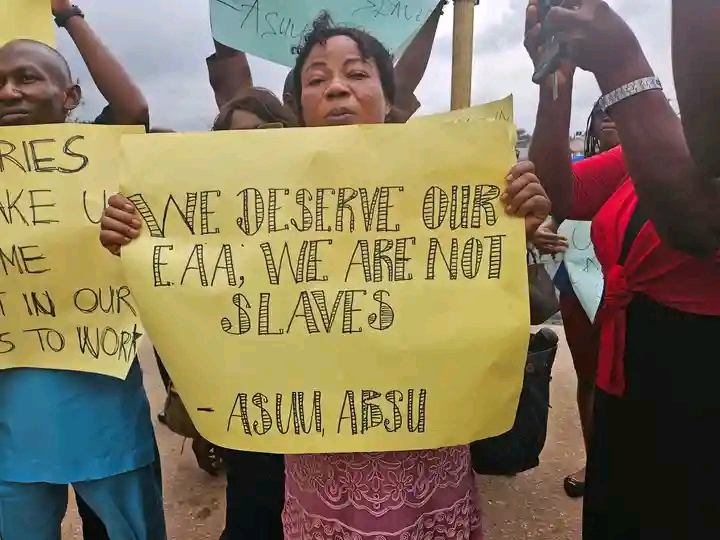 ASUU
SLAVE
RIES
AKE U
ME
T IN OUR
S TO WORK
WE DESERVE OUR
E.A.A; WE ARE NOT
SLAVES
- ASUU, ABSU